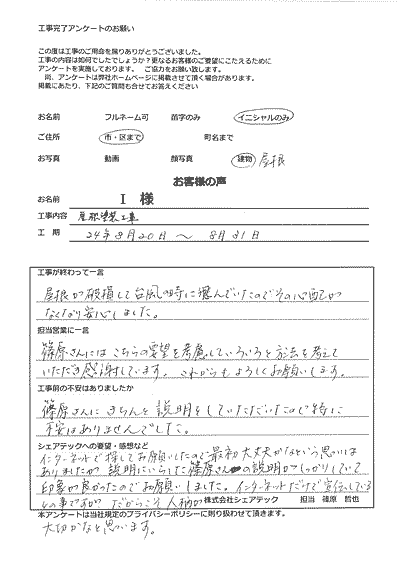 工事完了アンケートのお願い
この度は工事のご用命を賜りありがとうございました。
工事の内容は如何でしたでしょうか？更なるお客様のご要望にこたえるために
アンケートを実施しております。 ご協力をお願い致します。
尚、アンケートは弊社ホームページに掲載させて頂く場合があります。
掲載にあたり、下記のご質問も合せてお答えください
お名前 フルネーム可 苗字のみ イニシャルのみ
ご住所 市・区まで 町名まで
お写真 動画 顔写真 建物 屋根
お客様の声
お名前 I 様
工事内容 屋根塗装工事
工 期 24年8月20日 〜 8月31日
工事が終わって一言
屋根が破損して台風の時に悩んでいたのでその心配が
なくなり安心しました。
担当営業に一言
篠原さんにはこちらの要望を考慮していろいろと方法を考えて
いただき感謝しています。これからもよろしくお願いします。
工事前の不安はありましたか
篠原さんにきちんと説明をしていただいたので特に
不安はありませんでした。
シェアテックへの要望・感想など
インターネットで探してお願いしたので最初大丈夫かなという思いは
ありましたが、説明にいらした篠原さんの説明がしっかりしていて
印象が良かったのでお願いしました。インターネットだけで宣伝している
との事ですが だからこそ人柄が
株式会社シェアテック 担当 篠原 哲也
本アンケートは当社規定のプライバシーポリシーに則り扱わせて頂きます。
大切かなと思います。